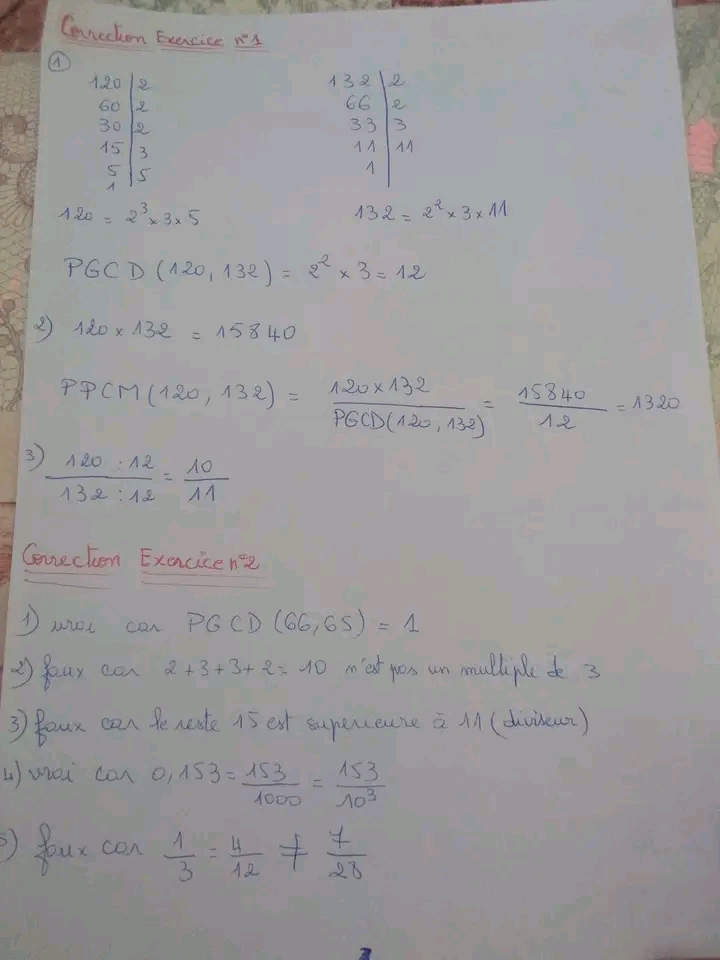 Correction Exercice n°1
1
120 | 2 132 | 2
60 | 2 66 | 2
30 | 2 33 | 3
15 | 3 11 | 11
5 | 5 1 |
1
120 = 2³ × 3 × 5 132 = 2² × 3 × 11
PGCD (120, 132) = 2² × 3 = 12
2) 120 × 132 = 15840
PPCM (120, 132) = 120×132 / PGCD(120, 132) = 15840 / 12 = 1320
3) 120 : 12 / 132 : 12 = 10 / 11
Correction Exercice n°2
1) vrai car PGCD (66,65) = 1
2) faux car 2+3+3+2 = 10 n'est pas un multiple de 3
3) faux car le reste 15 est superieure à 11 (diviseur)
4) vrai car 0,153 = 153 / 1000 = 153 / 10³
5) faux car 1 / 3 = 4 / 12 ≠ 7 / 28